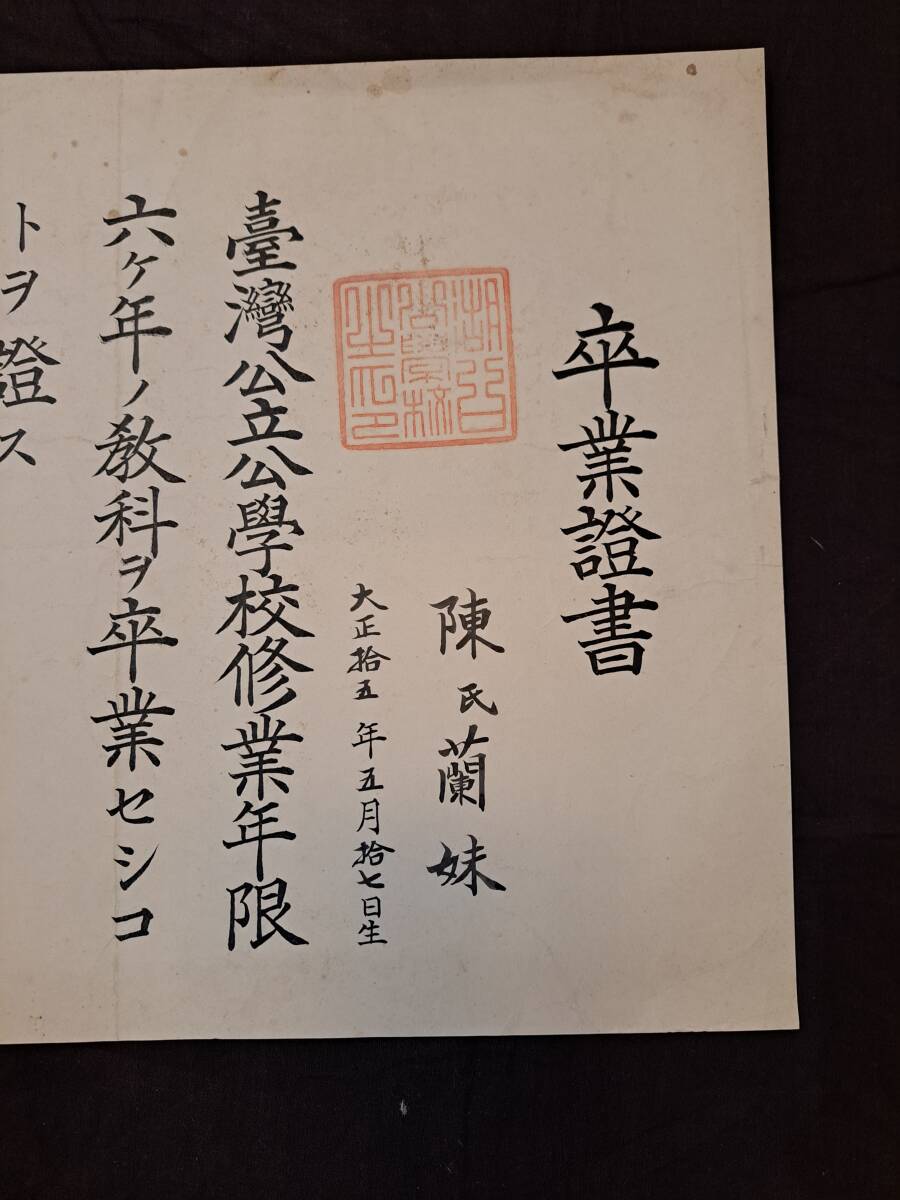 卒業證書
陳氏蘭妹
大正拾五年五月拾七日生
臺灣公立公學校修業年限
六ケ年ノ教科ヲ卒業セシコ
トヲ證ス